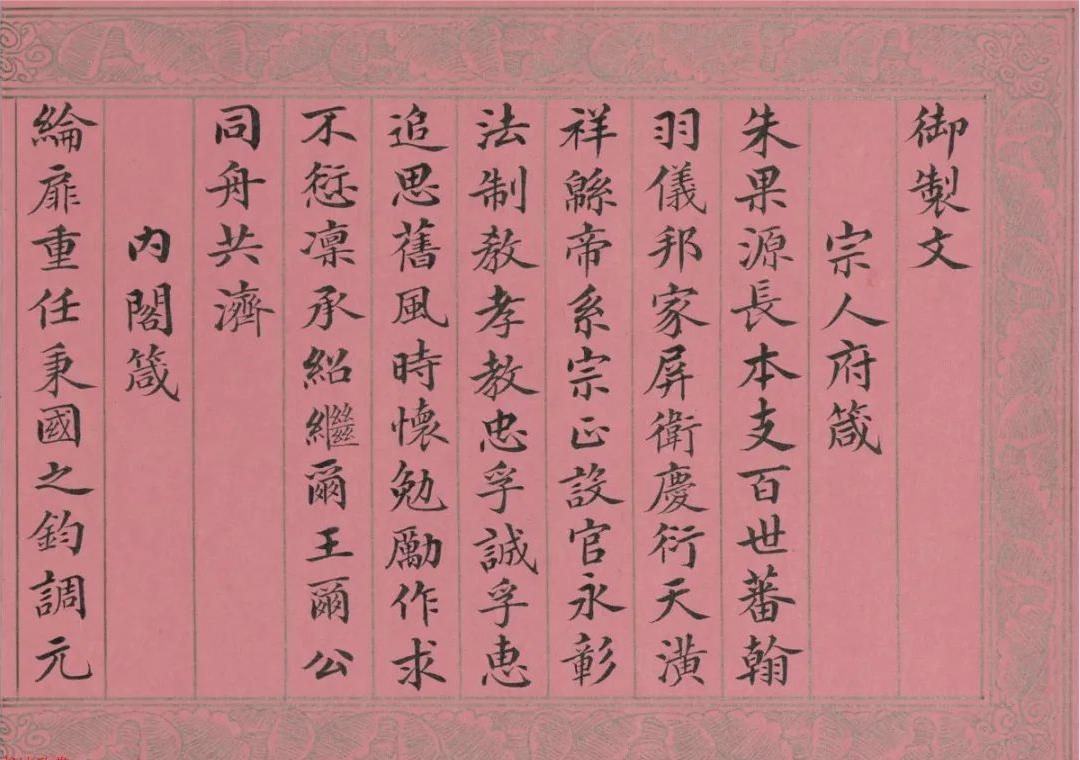 御製文
宗人府箴
朱果源長本支百世蕃翰
羽儀邦家屏衛慶衍天潢
祥緜帝系宗正設官永彰
法制教孝教忠孚誠孚惠
追思舊風時懷勉勵作求
不愆凛承紹繼爾王爾公
同舟共濟
内閣箴
綸扉重任秉國之鈞調元